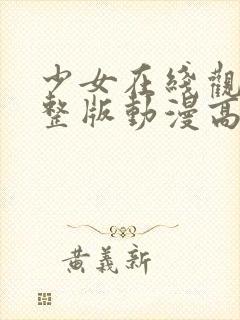 少女在綫觀
整版動漫高
黃義新